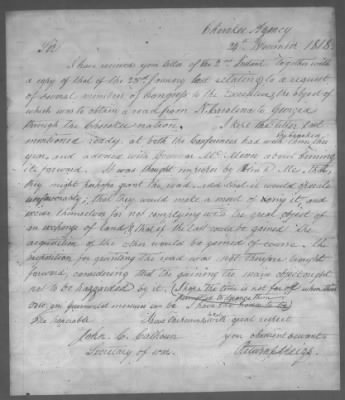 Cherokee Agency
24th November 1818.
Sir
I have received your letter of the 2nd Instant together with
a copy of that of the 28th January last relating to a request
of several members of Congress to the Executive, the object of
which was to obtain a road from N. Carolina to Georgia
through the Cherokee nation. I kept the letter last
mentioned ready, at both the Conferences had with the Cherokees this
year, and advised with Governor McMinn about bringing
it forward. It was thought improper by him & Me. That
they might perhaps grant the road, and that it would operate
unfavorably; that they would make a merit of doing it, and
excuse themselves for not complying with the great object of
an exchange of land & that if the last could be gained the
acquisition of the other would be gained of course. The
proposition for granting the road was not therefore brought
forward, considering that the gaining the main object ought
not to be hazarded by it. I hope the time is not far off when
our
permitted to
I have the honor to be
The Honorable Sir with great respect
John C. Calhoun your obedient servant
Secretary of War Return J. Meigs